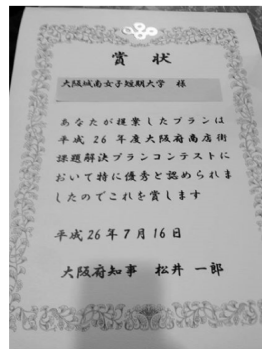 賞状
大阪城南女子短期大学 様
あなたが提案したプランは
平成 26 年度大阪府商店街
課題解決プランコンテストに
おいて特に優秀と認められま
したのでこれを賞します
平成26年7月16日
大阪府知事 松井 一郎